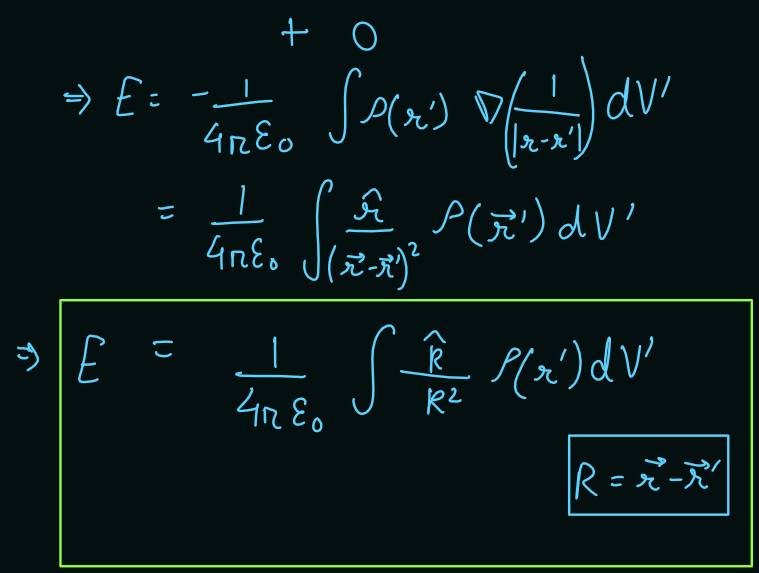 + 0
⇒ E = - 1/4πε₀ ∫ρ(r') ∇(1/|r-r'|) dV'
= 1/4πε₀ ∫ r̂/(r⃗-r⃗')² ρ(r⃗') dV'
⇒ E = 1/4πε₀ ∫ R̂/R² ρ(r') dV'
R = r⃗-r⃗'